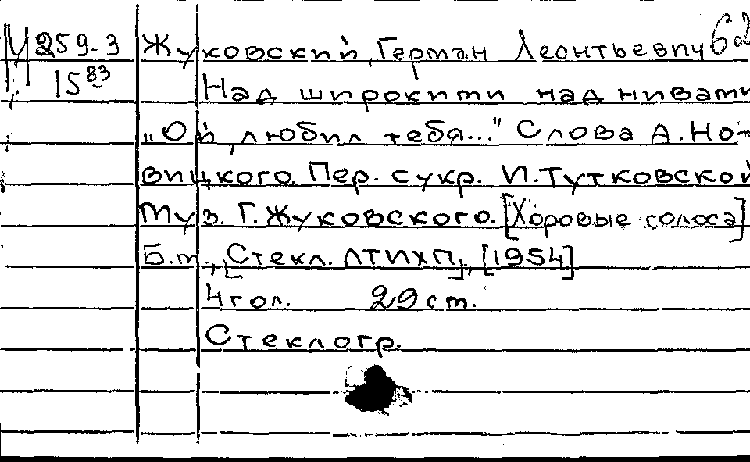 М 259-3 Жуковский, Герман Леонтьевич 62
15 83 Над широкими над нивами
"Ой, любил тебя..." Слова А. Но-
вицкого. Пер. с укр. И. Тутковской
Муз. Г. Жуковского. [Хоровые голоса]
Б.м., [Стекл. ЛТИХП], [1954]
4 гол. 29 cm.
Стеклогр.